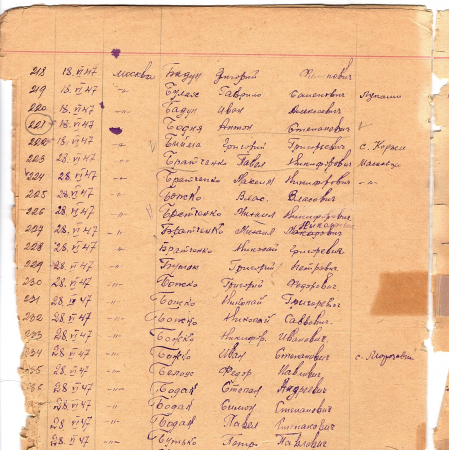 218 18.VI 47 Москва Бидун Григорий Филипович
219 18.VI 47 -"- Гаврило Самойлович
220 18.VI 47 -"- Бадун Иван Алексеевич
221 18.VI 47 Бодня Антон Степанович
222 18.VI 47 -"- Григорий Григорьевич с.
223 28.VI 47 -"- Братченко Павел Никифорович
224 28.VI 47 -"- Братченко Максим Никифорович -"-
225 28.VI 47 -"- Божко Влас Власович
226 28.VI 47 -"- Братченко Михаил Никифорович
227 28.VI 47 -"- Братченко Михаил Макарович
228 28.VI 47 -"- Братченко Николай Григорьевич
229 28.VI 47 -"- Григорий Петрович
230 28.VI 47 -"- Божко Григорий Федорович
231 28.VI 47 -"- Божко Николай Григорьевич
232 28.VI 47 -"- Божко Николай Саввович
233 28.VI 47 -"- Божко Никифор Иванович
234 28.VI 47 -"- Божко Иван Степанович с.
235 28.VI 47 -"- Белоус Федор Павлович
236 28.VI 47 -"- Бодак Степан Андреевич
28.VI 47 -"- Бодак Семен Степанович
28.VI 47 -"- Бодак Павел Степанович
28.VI 47 -"- Бутько Павлович